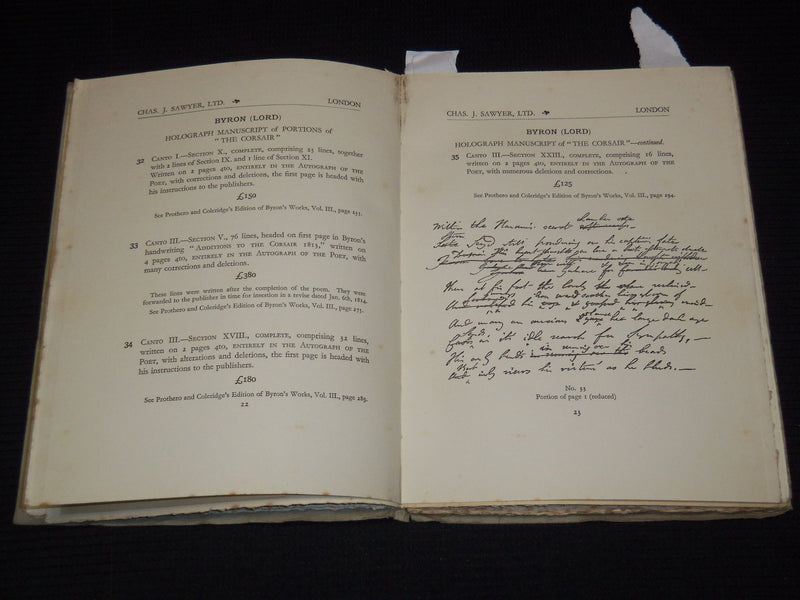 CHAS. J. SAWYER, LTD. LONDON
BYRON (LORD)
HOLOGRAPH MANUSCRIPT of PORTIONS of
"THE CORSAIR"
32 CANTO I.—SECTION X., COMPLETE, comprising 23 lines, together
with 2 lines of Section IX. and 1 line of Section XI.
Written on 2 pages 4to, ENTIRELY IN THE AUTOGRAPH OF THE
POET, with corrections and deletions, the first page is headed with
his instructions to the publishers.
£150
See Prothero and Coleridge's Edition of Byron's Works, Vol. III., page 231.
33 CANTO III.—SECTION V., 76 lines, headed on first page in Byron's
handwriting "ADDITIONS TO THE CORSAIR 1813," written on
4 pages 4to, ENTIRELY IN THE AUTOGRAPH OF THE POET, with
many corrections and deletions.
£380
These lines were written after the completion of the poem. They were
forwarded to the publisher in time for insertion in a revise dated Jan. 6th, 1814.
See Prothero and Coleridge's Edition of Byron's Works, Vol. III., page 275.
34 CANTO III.—SECTION XVIII., COMPLETE, comprising 32 lines,
written on 2 pages 4to, ENTIRELY IN THE AUTOGRAPH OF THE
POET, with alterations and deletions, the first page is headed with
his instructions to the publisher.
£180
See Prothero and Coleridge's Edition of Byron's Works, Vol. III., page 289.
22
CHAS. J. SAWYER, LTD. LONDON
BYRON (LORD)
HOLOGRAPH MANUSCRIPT of "THE CORSAIR"—continued.
35 CANTO III.—SECTION XXIII., COMPLETE, comprising 16 lines,
written on 2 pages 4to, ENTIRELY IN THE AUTOGRAPH OF THE
POET, with numerous deletions and corrections.
£125
See Prothero and Coleridge's Edition of Byron's Works, Vol. III., page 294.
Within the Haram's secret chamber
Seyd still pondering on his captive's fate
at his feet the lovely
And many an anxious glance her large dark eye
in its idle search for Sympathy,—
his beads
But views his victim as he bleeds.—
No. 33
Portion of page 1 (reduced)
23